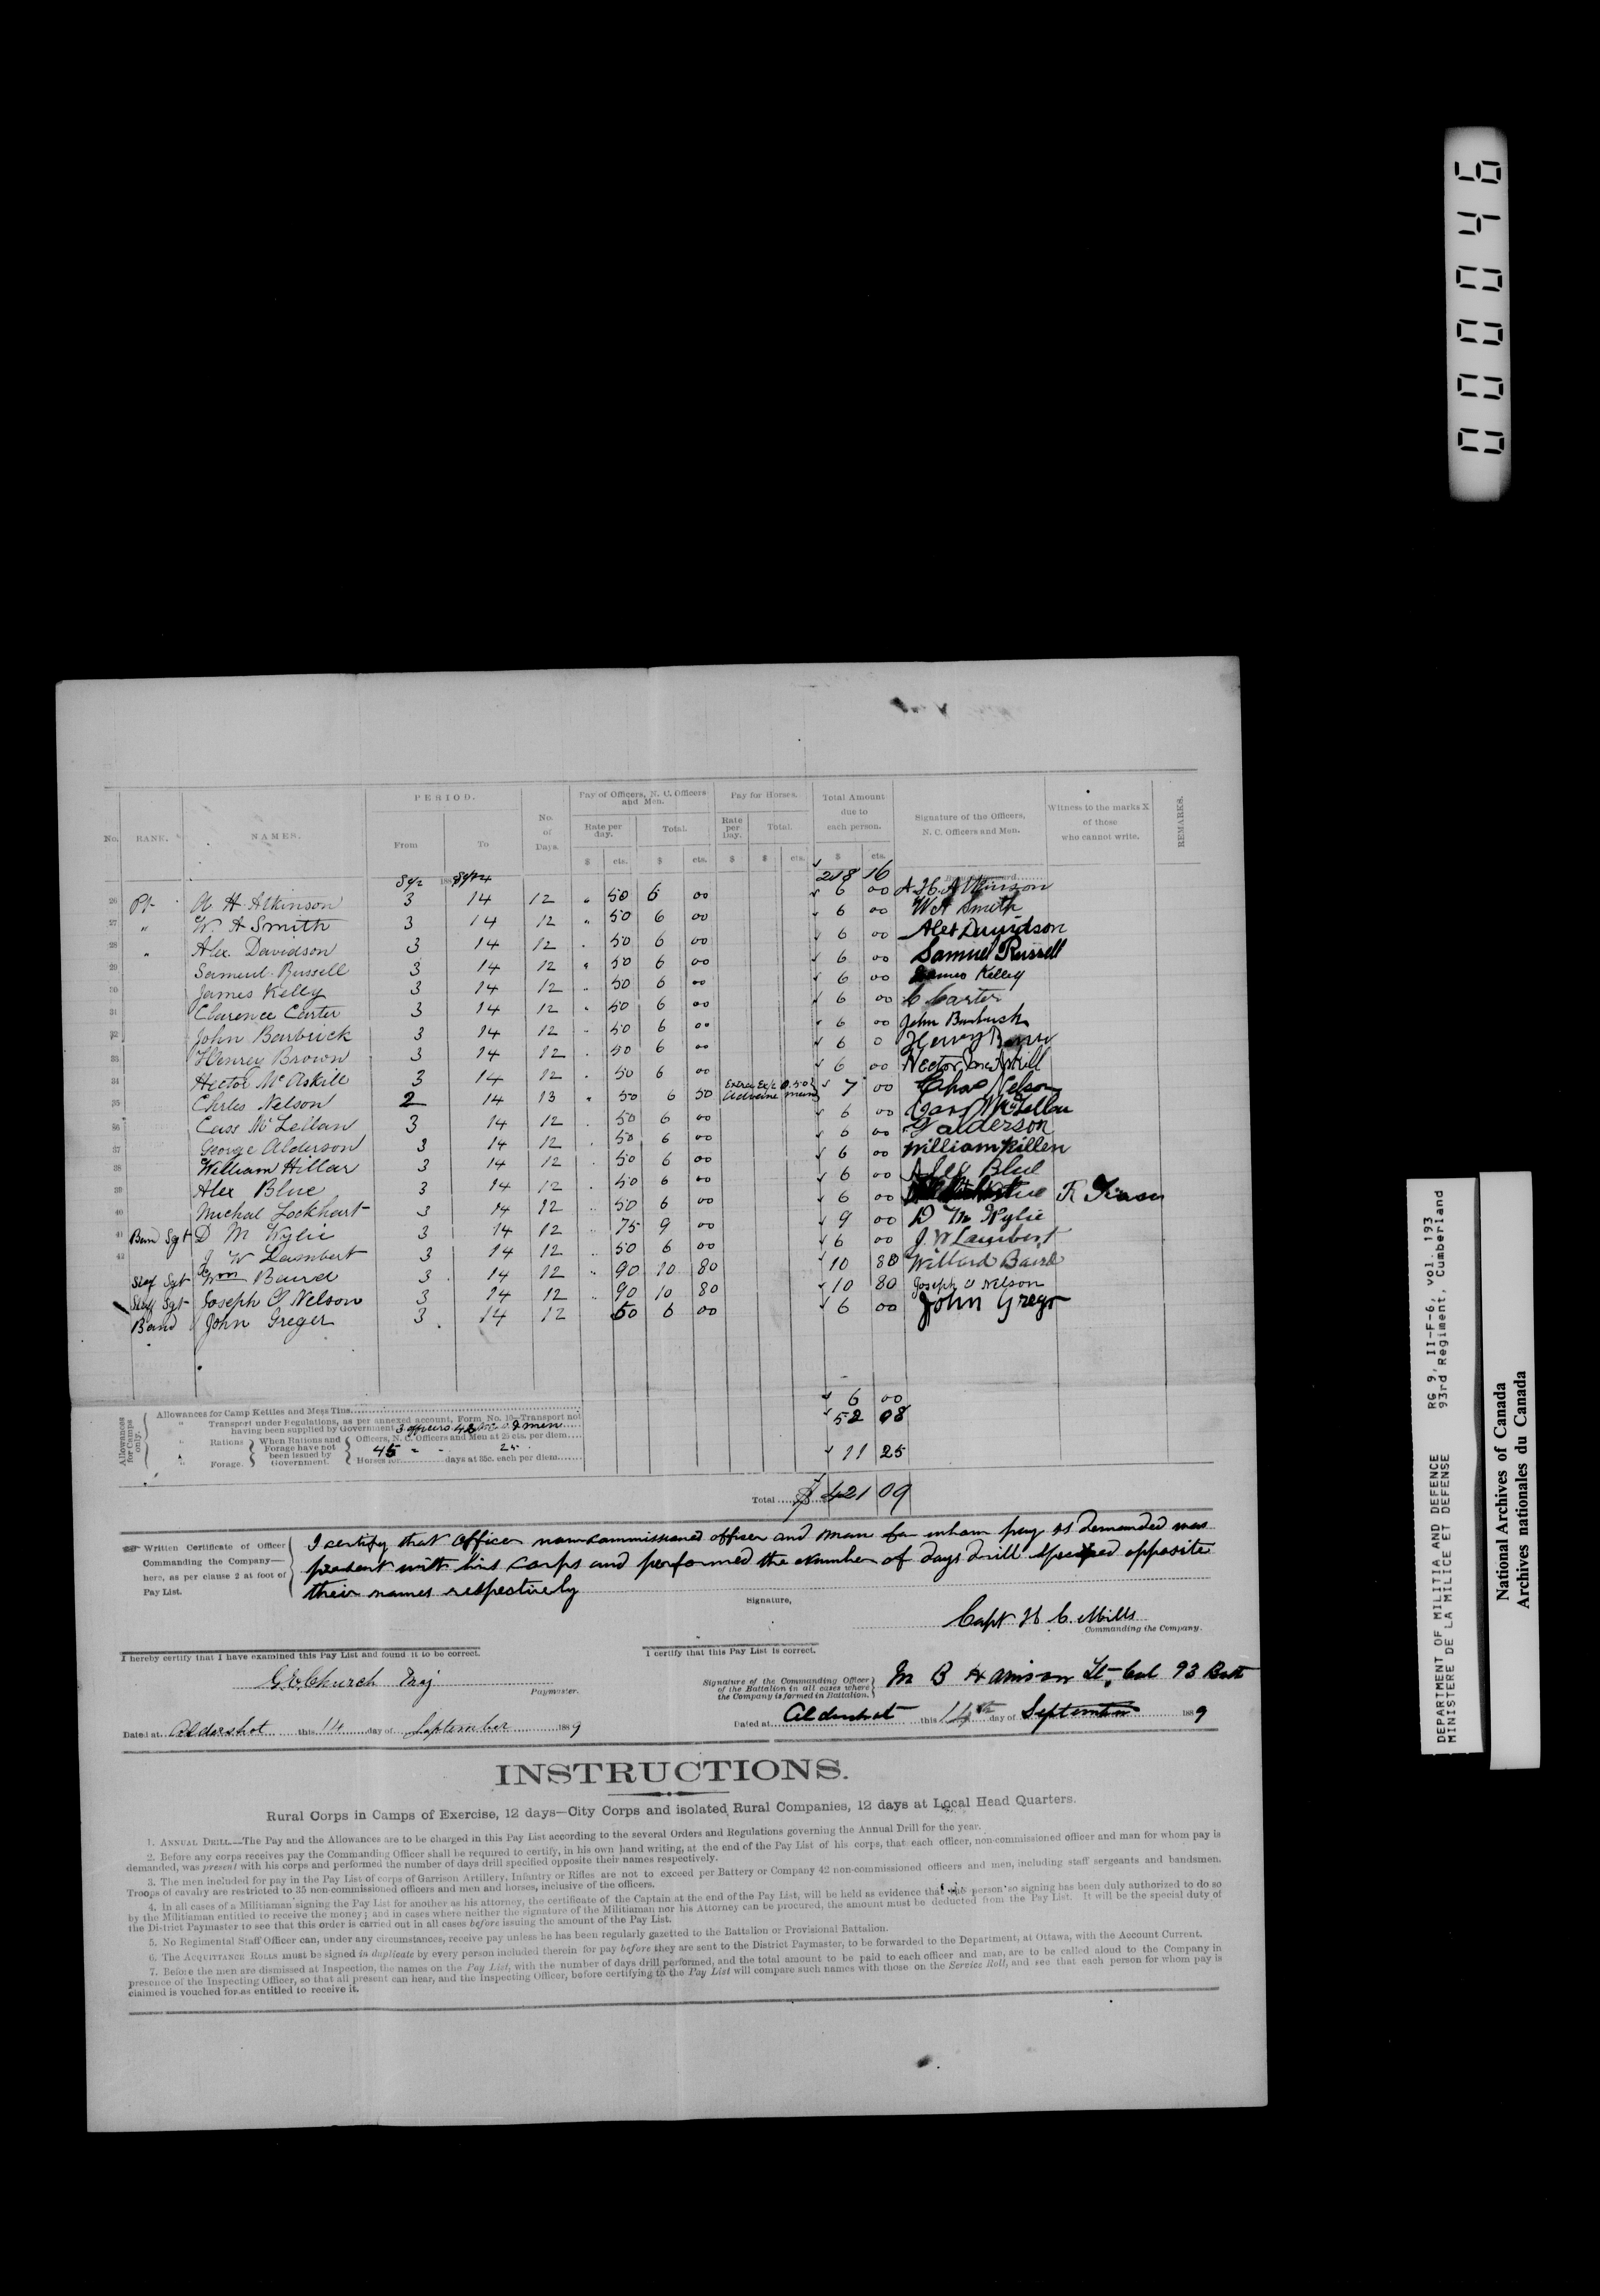 No. RANK. NAMES. PERIOD. From To No. of Days. Pay of Officers, N. C. Officers and Men. Rate per day. Total. $ cts. $ cts. Pay for Horses. Rate per Day. Total. $ $ cts. Total Amount due to each person. $ cts. Signature of the Officers, N. C. Officers and Men. Witness to the marks X of those who cannot write. REMARKS.
218 16
26 Pt A H Atkinson 3 14 12 " 50 6 00 6 00 A. H. Atkinson
27 " W. A Smith 3 14 12 " 50 6 00 6 00 W A Smith
28 " Alex. Davidson 3 14 12 " 50 6 00 6 00 Alex Davidson
29 Samuel Russell 3 14 12 " 50 6 00 6 00 Samuel Russell
30 James Kelly 3 14 12 " 50 6 00 6 00 James Kelley
31 Clarence Carter 3 14 12 " 50 6 00 6 00 C Carter
32 John Barbrick 3 14 12 " 50 6 00 6 00 John
33 Henrey Brown 3 14 12 " 50 6 00 6 0 Henry Brown
34 Hector McAskill 3 14 12 " 50 6 00 6 00 Hector
35 Chrles Nelson 2 14 13 " 50 6 50 0.50 7 00 Chas Nelson
36 Cass McLellan 3 14 12 " 50 6 00 6 00 McLellan
37 George Alderson 3 14 12 " 50 6 00 6 00 G alderson
38 William Hillar 3 14 12 " 50 6 00 6 00 William Killen
39 Alex Blue 3 14 12 " 50 6 00 6 00 Alex Blue
40 Micheal Lockhart 3 14 12 " 50 6 00 6 00
41 Ban Sgt D M Wylie 3 14 12 " 75 9 00 9 00 D M Wylie
42 J W Lambert 3 14 12 " 50 6 00 6 00 J. W Lambert
Staf Sgt Wm Baird 3 14 12 " 90 10 80 10 80 Willard Baird
Staff Sgt Joseph O Nelson 3 14 12 " 90 10 80 10 80 Joseph O Nelson
Band John Greger 3 14 12 50 6 00 6 00 John Gregor
Allowances for Camps only.
Allowances for Camp Kettles and Mess Tins 6 00
" Transport under Regulations, as per annexed account, Form No. 10—Transport not having been supplied by Government 52 08
" Rations When Rations and Forage have not been issued by Government. Officers, N. C. Officers and Men at 25 cts. per diem 3 officers 42 men
45 " " 25 11 25
" Forage. Horses for days at 35c. each per diem
Total $ 421 09
Written Certificate of Officer Commanding the Company—here, as per clause 2 at foot of Pay List.
I certify that Officer non-commissioned officer and man for whom pay is demanded was
present with his corps and performed the number of days drill specified opposite
their names respectively
Signature, Capt H. C. Mills
Commanding the Company.
I hereby certify that I have examined this Pay List and found it to be correct.
G. E. Church Maj
Paymaster.
Dated at Aldershot this 14 day of September 1889
I certify that this Pay List is correct.
Signature of the Commanding Officer of the Battalion in all cases where the Company is formed in Battalion. M B Harrison Lt-Col 93 Batt
Dated at Aldershot this 14th day of September 1889
INSTRUCTIONS.
Rural Corps in Camps of Exercise, 12 days—City Corps and isolated Rural Companies, 12 days at Local Head Quarters.
1. ANNUAL DRILL—The Pay and the Allowances are to be charged in this Pay List according to the several Orders and Regulations governing the Annual Drill for the year.
2. Before any corps receives pay the Commanding Officer shall be required to certify, in his own hand writing, at the end of the Pay List of his corps, that each officer, non-commissioned officer and man for whom pay is
demanded, was present with his corps and performed the number of days drill specified opposite their names respectively.
3. The men included for pay in the Pay List of corps of Garrison Artillery, Infantry or Rifles are not to exceed per Battery or Company 42 non-commissioned officers and men, including staff sergeants and bandsmen.
Troops of cavalry are restricted to 35 non-commissioned officers and men and horses, inclusive of the officers.
4. In all cases of a Militiaman signing the Pay List for another as his attorney, the certificate of the Captain at the end of the Pay List, will be held as evidence that this person so signing has been duly authorized to do so
by the Militiaman entitled to receive the money; and in cases where neither the signature of the Militiaman nor his Attorney can be procured, the amount must be deducted from the Pay List. It will be the special duty of
the District Paymaster to see that this order is carried out in all cases before issuing the amount of the Pay List.
5. No Regimental Staff Officer can, under any circumstances, receive pay unless he has been regularly gazetted to the Battalion or Provisional Battalion.
6. The ACQUITTANCE ROLLS must be signed in duplicate by every person included therein for pay before they are sent to the District Paymaster, to be forwarded to the Department, at Ottawa, with the Account Current.
7. Before the men are dismissed at Inspection, the names on the Pay List, with the number of days drill performed, and the total amount to be paid to each officer and man, are to be called aloud to the Company in
presence of the Inspecting Officer, so that all present can hear, and the Inspecting Officer, before certifying to the Pay List will compare such names with those on the Service Roll, and see that each person for whom pay is
claimed is vouched for as entitled to receive it.
000046
DEPARTMENT OF MILITIA AND DEFENCE RG 9, II-F-6, vol. 193
MINISTERE DE LA MILICE ET DEFENSE 93rd Regiment, Cumberland
National Archives of Canada
Archives nationales du Canada